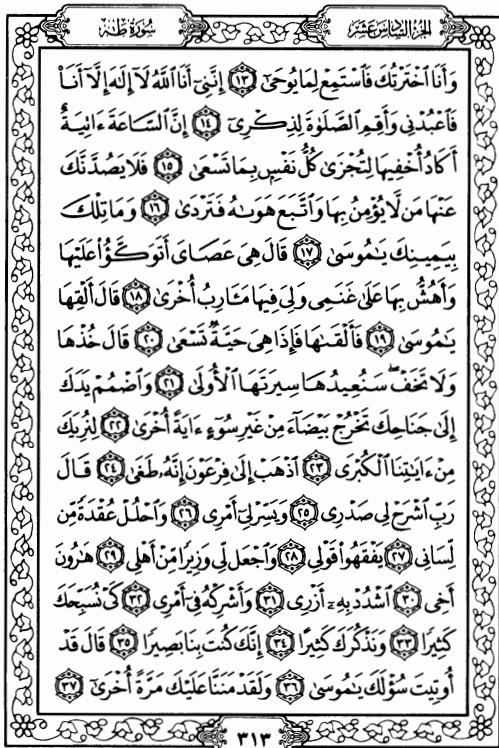 سُورَةُ طٰهٰ
الجُزءُ السَّادِسَ عَشَرَ
وَأَنَا ٱخْتَرْتُكَ فَٱسْتَمِعْ لِمَا يُوحَىٰٓ ١٣ إِنَّنِىٓ أَنَا ٱللَّهُ لَآ إِلَٰهَ إِلَّآ أَنَا۠
فَٱعْبُدْنِى وَأَقِمِ ٱلصَّلَوٰةَ لِذِكْرِىٓ ١٤ إِنَّ ٱلسَّاعَةَ ءَاتِيَةٌ
أَكَادُ أُخْفِيهَا لِتُجْزَىٰ كُلُّ نَفْسٍۭ بِمَا تَسْعَىٰ ١٥ فَلَا يَصُدَّنَّكَ
عَنْهَا مَن لَّا يُؤْمِنُ بِهَا وَٱتَّبَعَ هَوَىٰهُ فَتَرْدَىٰ ١٦ وَمَا تِلْكَ
بِيَمِينِكَ يَٰمُوسَىٰ ١٧ قَالَ هِىَ عَصَاىَ أَتَوَكَّؤُا۟ عَلَيْهَا
وَأَهُشُّ بِهَا عَلَىٰ غَنَمِى وَلِىَ فِيهَا مَـَٔارِبُ أُخْرَىٰ ١٨ قَالَ أَلْقِهَا
يَٰمُوسَىٰ ١٩ فَأَلْقَىٰهَا فَإِذَا هِىَ حَيَّةٌ تَسْعَىٰ ٢٠ قَالَ خُذْهَا
وَلَا تَخَفْ ۖ سَنُعِيدُهَا سِيرَتَهَا ٱلْأُولَىٰ ٢١ وَٱضْمُمْ يَدَكَ
إِلَىٰ جَنَاحِكَ تَخْرُجْ بَيْضَآءَ مِنْ غَيْرِ سُوٓءٍ ءَايَةً أُخْرَىٰ ٢٢ لِنُرِيَكَ
مِنْ ءَايَٰتِنَا ٱلْكُبْرَى ٢٣ ٱذْهَبْ إِلَىٰ فِرْعَوْنَ إِنَّهُۥ طَغَىٰ ٢٤ قَالَ
رَبِّ ٱشْرَحْ لِى صَدْرِى ٢٥ وَيَسِّرْ لِىٓ أَمْرِى ٢٦ وَٱحْلُلْ عُقْدَةً مِّن
لِّسَانِى ٢٧ يَفْقَهُوا۟ قَوْلِى ٢٨ وَٱجْعَل لِّى وَزِيرًا مِّنْ أَهْلِى ٢٩ هَٰرُونَ
أَخِى ٣٠ ٱشْدُدْ بِهِۦٓ أَزْرِى ٣١ وَأَشْرِكْهُ فِىٓ أَمْرِى ٣٢ كَىْ نُسَبِّحَكَ
كَثِيرًا ٣٣ وَنَذْكُرَكَ كَثِيرًا ٣٤ إِنَّكَ كُنتَ بِنَا بَصِيرًا ٣٥ قَالَ قَدْ
أُوتِيتَ سُؤْلَكَ يَٰمُوسَىٰ ٣٦ وَلَقَدْ مَنَنَّا عَلَيْكَ مَرَّةً أُخْرَىٰٓ ٣٧
٣١٣